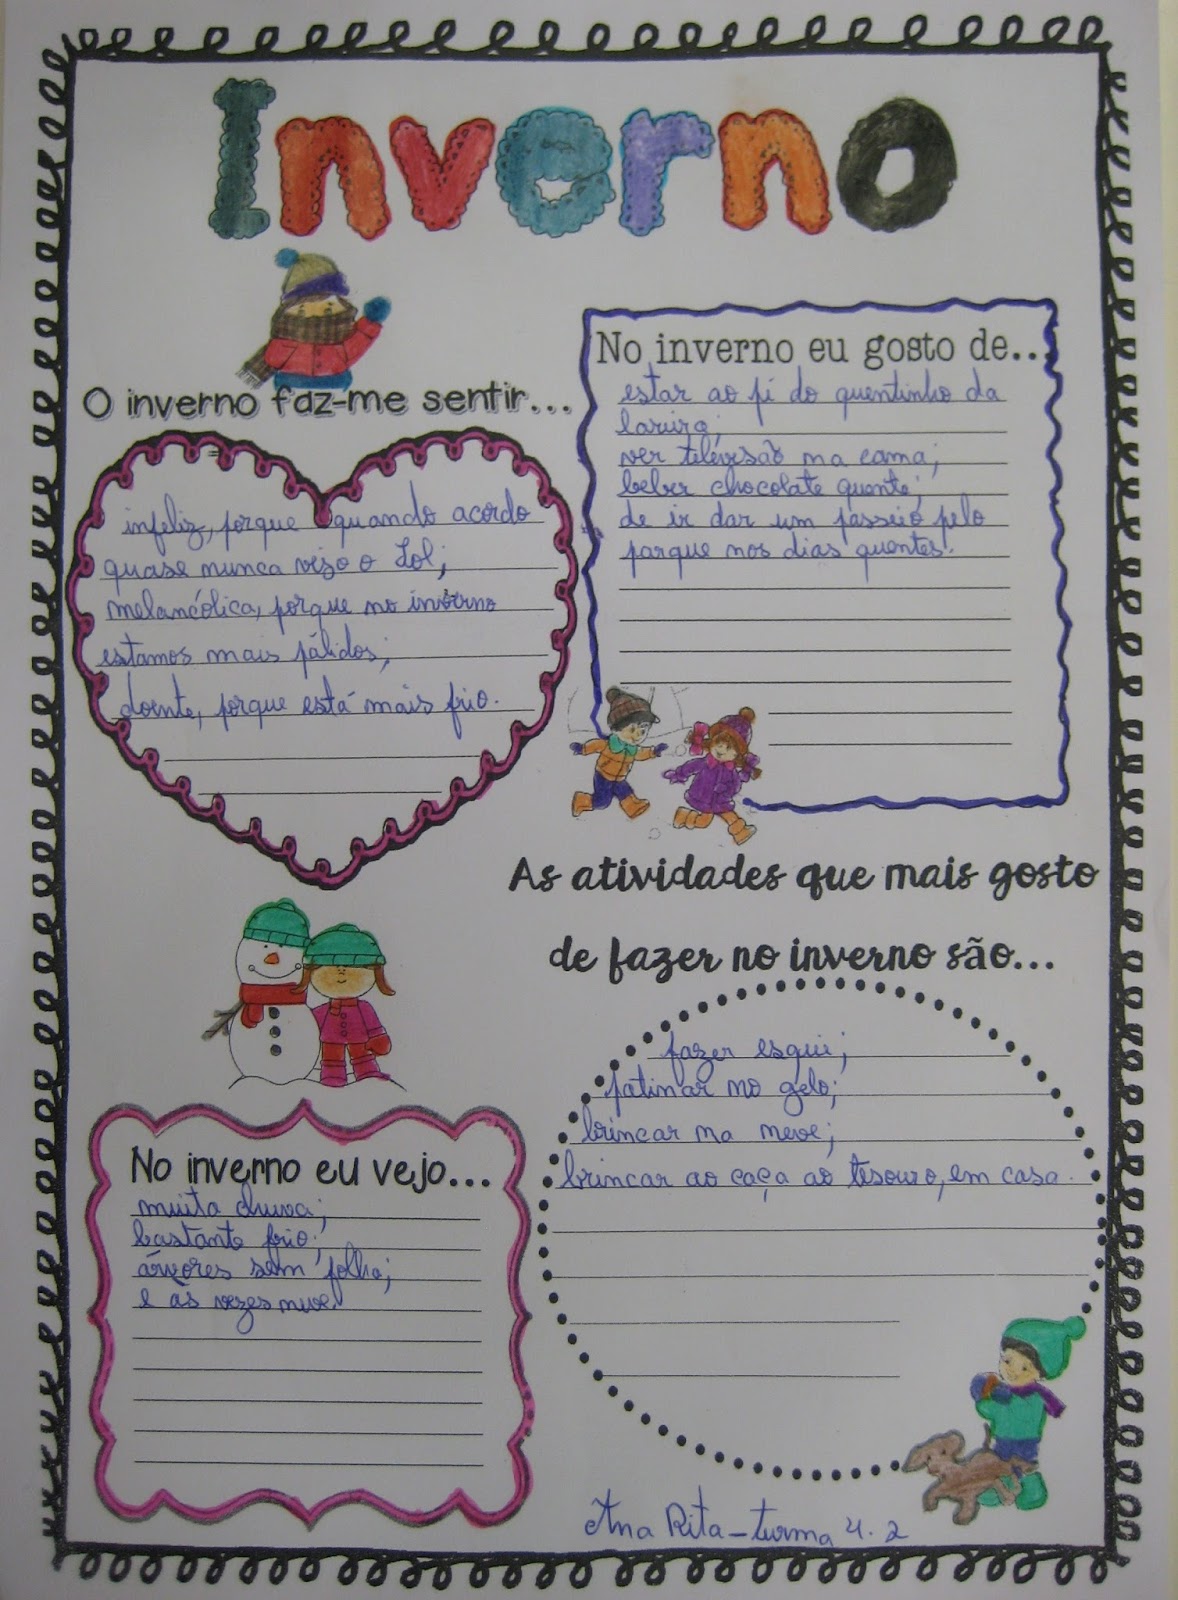 Inverno
O inverno faz-me sentir...
infeliz, porque quando acordo
quase nunca vejo o Sol;
melancólica, porque no inverno
estamos mais pálidos;
doente, porque está mais frio.
No inverno eu gosto de...
estar ao pé do quentinho da
lareira;
ver televisão na cama;
beber chocolate quente;
de ir dar um passeio pelo
parque nos dias quentes.
As atividades que mais gosto
de fazer no inverno são...
fazer esqui;
patinar no gelo;
brincar na neve;
brincar ao caça ao tesouro, em casa.
No inverno eu vejo...
muita chuva;
bastante frio;
árvores sem folha;
e às vezes neve.
Ana Rita - turma 4.2